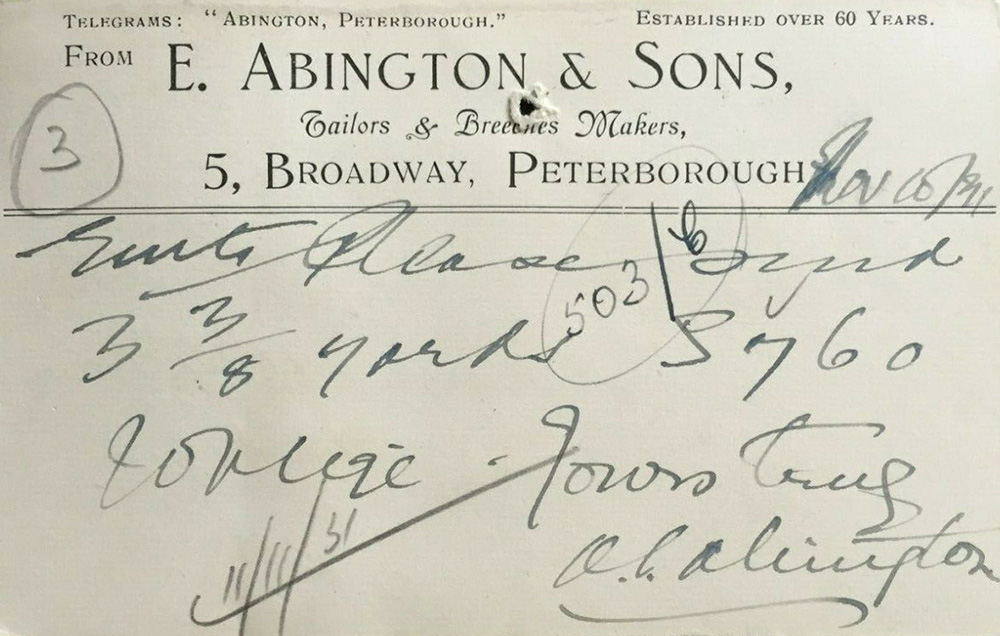 TELEGRAMS: "ABINGTON, PETERBOROUGH."
ESTABLISHED OVER 60 YEARS.
FROM E. ABINGTON & SONS,
Tailors & Breeches Makers,
5, BROADWAY, PETERBOROUGH
3
Nov 10/31
Gents Please send
503
3 3/8 yards 5760
oblige. Yours truly
11/11/31
A. C. Abington